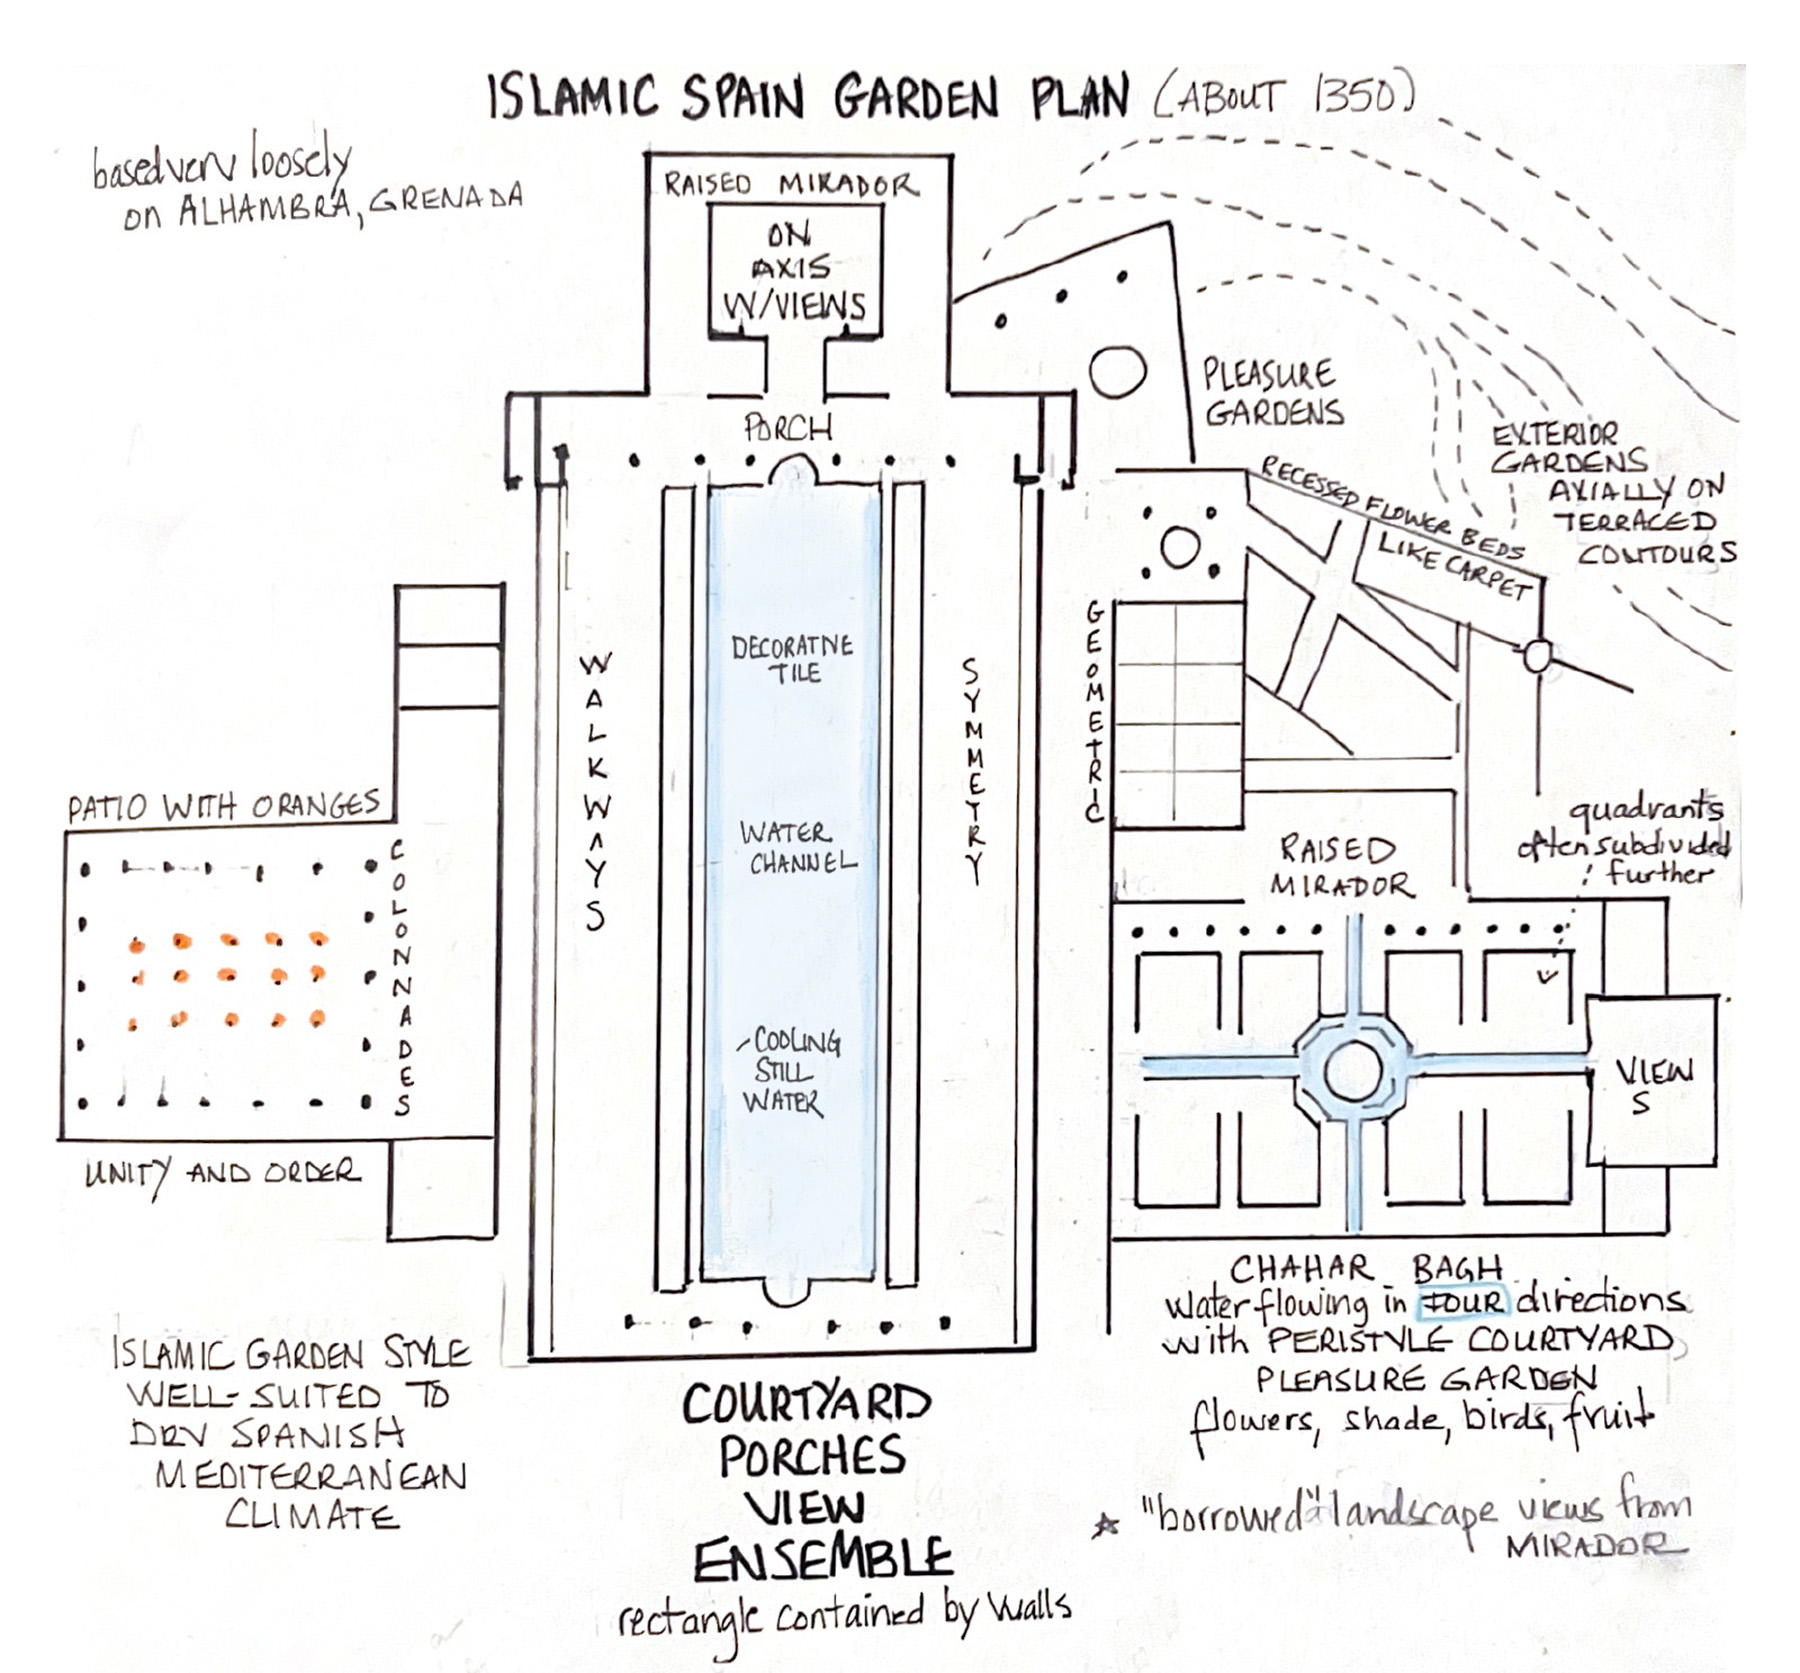 ISLAMIC SPAIN GARDEN PLAN (ABOUT 1350)
based very loosely
on ALHAMBRA, GRENADA
RAISED MIRADOR
ON
AXIS
W/VIEWS
PORCH
PLEASURE
GARDENS
EXTERIOR
GARDENS
AXIALLY ON
TERRACED
CONTOURS
RECESSED FLOWER BEDS
LIKE CARPET
GEOMETRIC
WALKWAYS
DECORATIVE
TILE
WATER
CHANNEL
COOLING
STILL
WATER
SYMMETRY
PATIO WITH ORANGES
COLONNADES
UNITY AND ORDER
RAISED
MIRADOR
quadrants
often subdivided
further
VIEW
S
CHAHAR BAGH
water flowing in FOUR directions
with PERISTYLE COURTYARD
PLEASURE GARDEN
flowers, shade, birds, fruit
"borrowed" landscape views from
MIRADOR
ISLAMIC GARDEN STYLE
WELL-SUITED TO
DRY SPANISH
MEDITERRANEAN
CLIMATE
COURTYARD
PORCHES
VIEW
ENSEMBLE
rectangle contained by walls